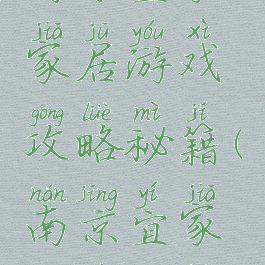 jiā jū yóu xì
家居游戏
gōng lüè mì jí
攻略秘籍(
nán jīng yí jiā
南京宜家